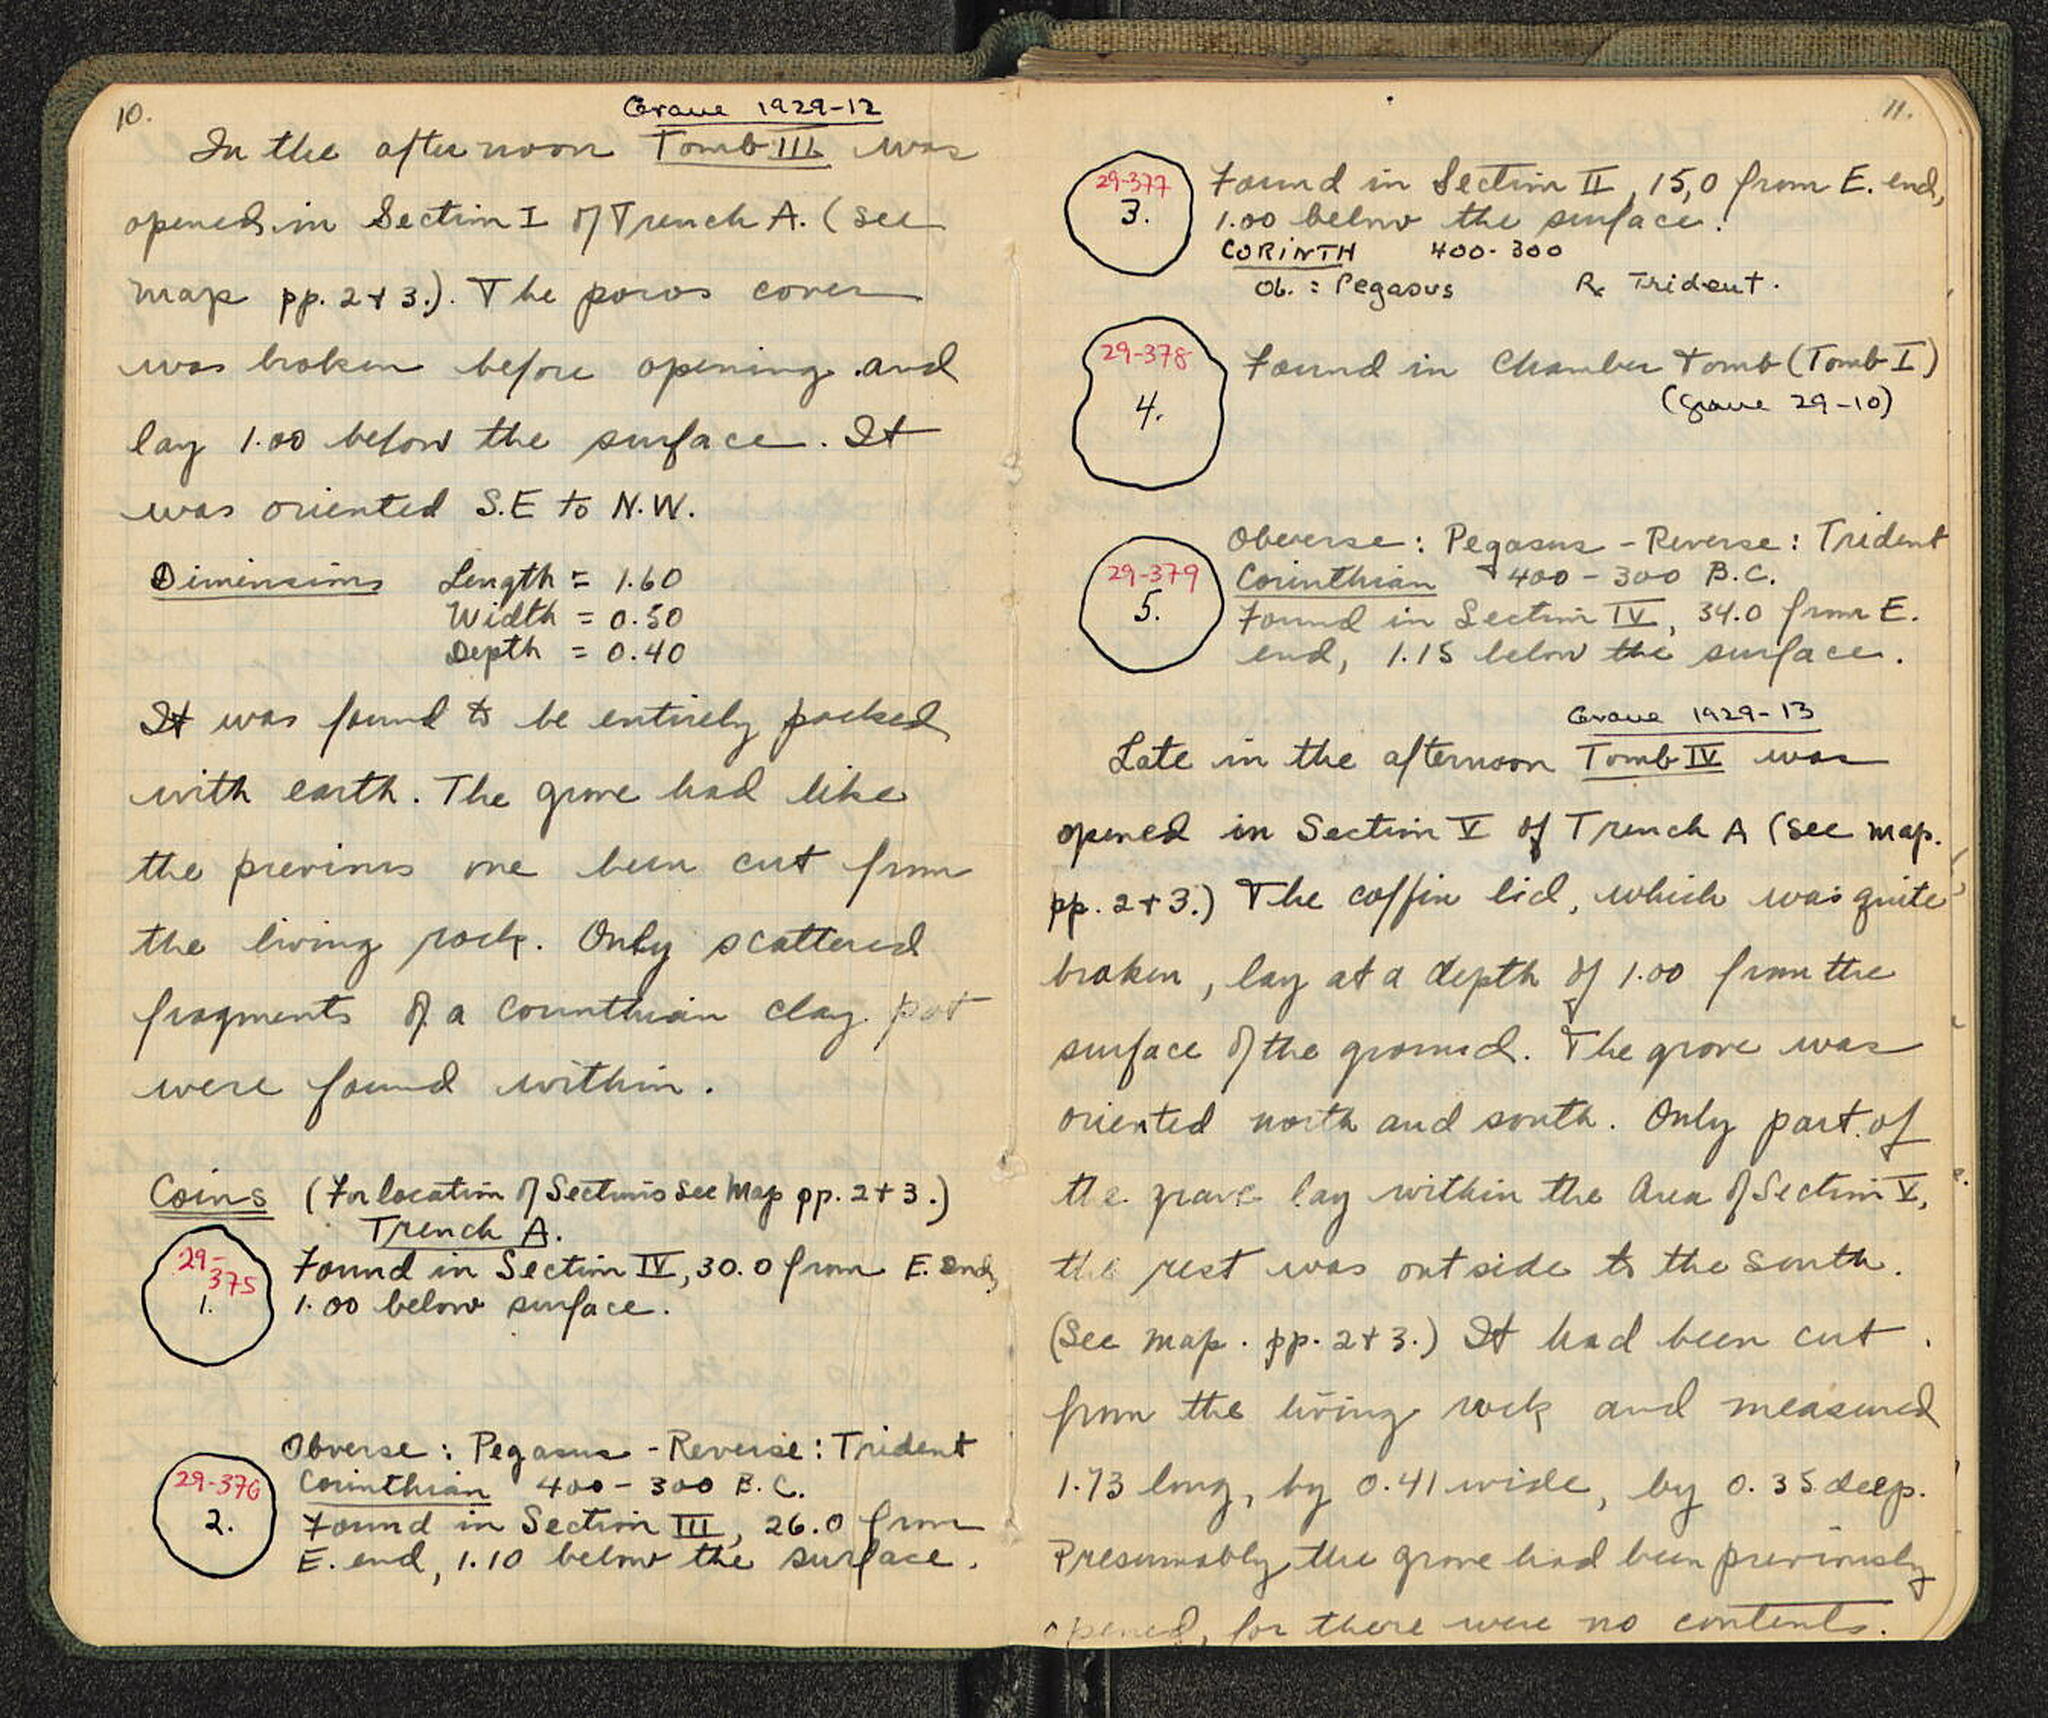 10.
Grave 1929-12
In the afternoon Tomb III was
opened in Section I of Trench A. (See
map pp. 2 + 3.). The poros cover
was broken before opening and
lay 1.00 below the surface. It
was oriented S.E to N.W.
Dimensions Length = 1.60
Width = 0.50
Depth = 0.40
It was found to be entirely packed
with earth. The grave had like
the previous one been cut from
the living rock. Only scattered
fragments of a Corinthian clay pot
were found within.
Coins (For location of Sections See Map pp. 2 + 3.)
Trench A.
29-375
1.
Found in Section IV, 30.0 from E. end,
1.00 below surface.
Obverse : Pegasus - Reverse : Trident
29-376
2.
Corinthian 400 - 300 B.C.
Found in Section III, 26.0 from
E. end, 1.10 below the surface.
11.
29-377
3.
Found in Section II, 15,0 from E. end,
1.00 below the surface.
CORINTH 400-300
Ob. : Pegasus R. Trident.
29-378
4.
Found in Chamber Tomb (Tomb I)
(grave 29-10)
Obverse : Pegasus - Reverse : Trident
29-379
5.
Corinthian 400 - 300 B.C.
Found in Section IV, 34.0 from E.
end, 1.15 below the surface.
Grave 1929-13
Late in the afternoon Tomb IV was
opened in Section V of Trench A (See map.
pp. 2 + 3.) The coffin lid, which was quite
broken, lay at a depth of 1.00 from the
surface of the ground. The grave was
oriented north and south. Only part of
the grave lay within the Area of Section V,
the rest was outside to the South.
(See map. pp. 2 + 3.) It had been cut
from the living rock and measured
1.73 long, by 0.41 wide, by 0.35 deep.
Presumably the grave had been previously
opened, for there were no contents.